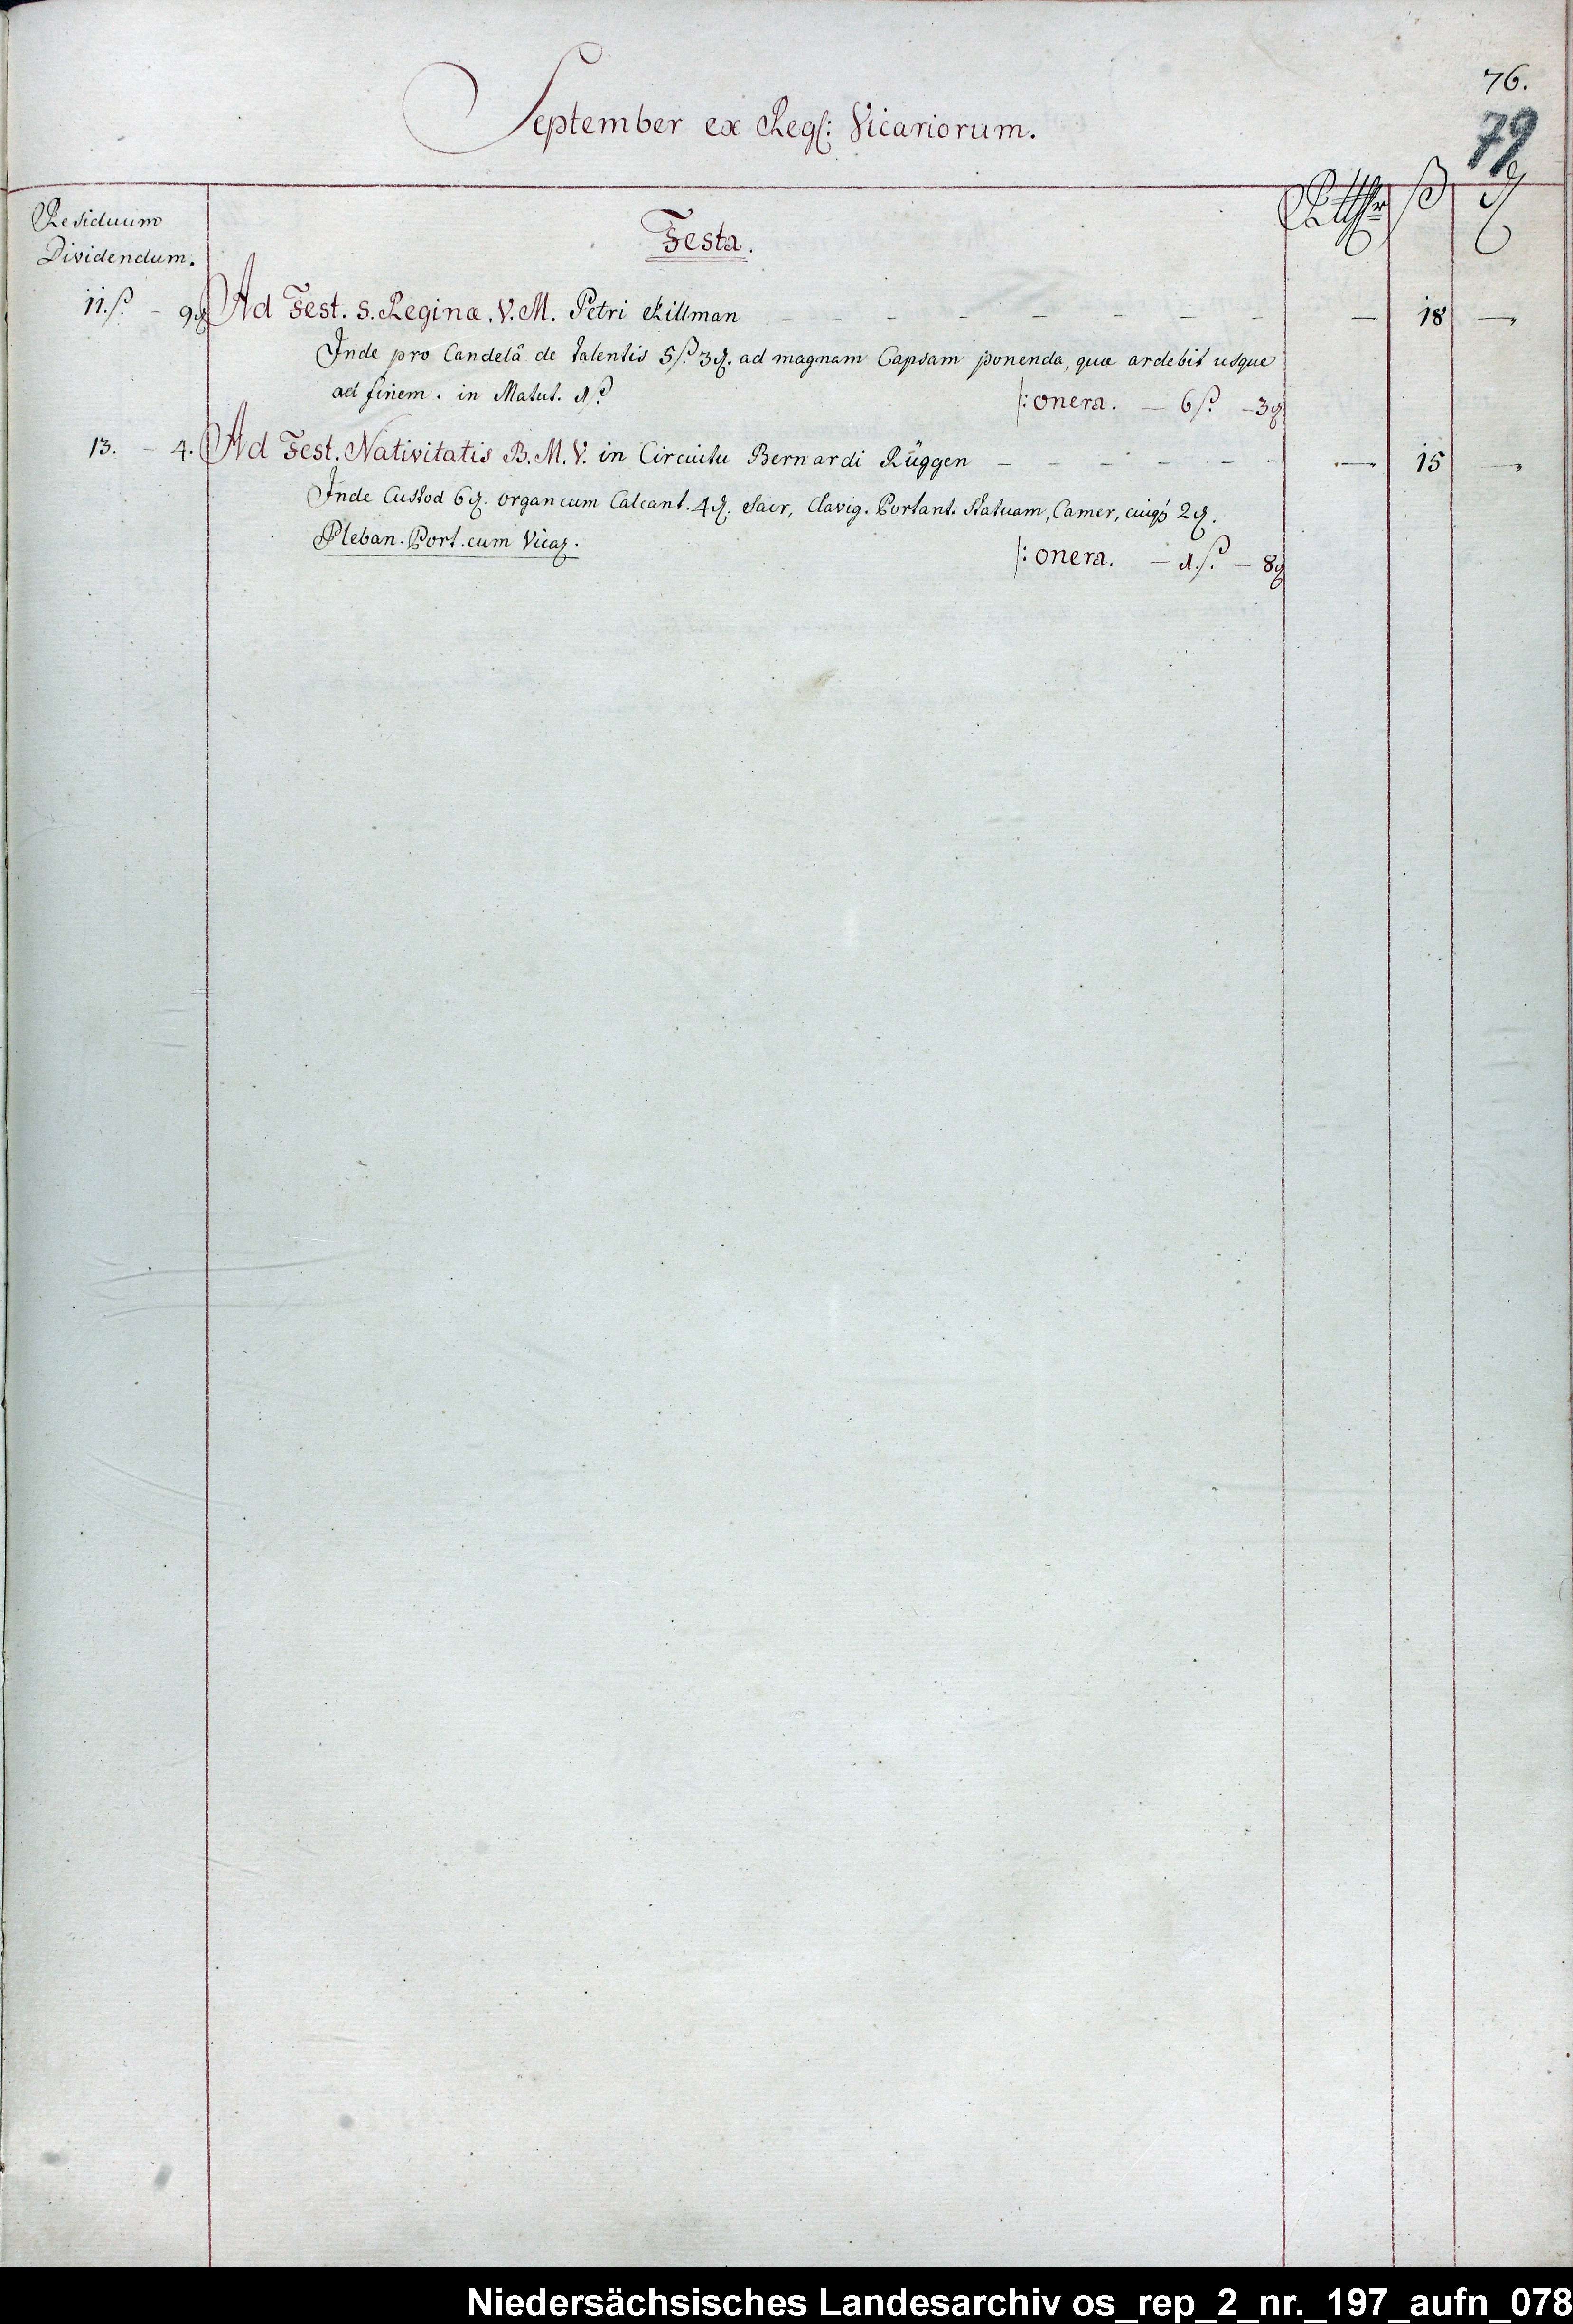 76.
79
September ex Regl: Vicariorum.
Residuum
Dividendum.
Festa.
Rtthlr ß ₰
11.ß. – 9₰ Ad Fest. S. Reginæ. V. M. Petri Killman – – – – – – – – – 18 –
Inde pro Candelâ de talentis 5ß. 3₰. ad magnam Capsam ponenda, quæ ardebit usque
ad finem. in Matut. 1ß.
/: onera. – 6ß. – 3₰
13. – 4. Ad Fest. Nativitatis B. M. V. in Circuitu Bernardi Rüggen – – – – – – – 15 –
Inde Custod 6₰. organ cum Calcant. 4₰. Sacr, Clavig. Portant. Statuam, Camer, 2₰.
Pleban. Port. cum Vicar.
/: onera. – 1.ß. – 8₰
Niedersächsisches Landesarchiv os_rep_2_nr._197_aufn_078